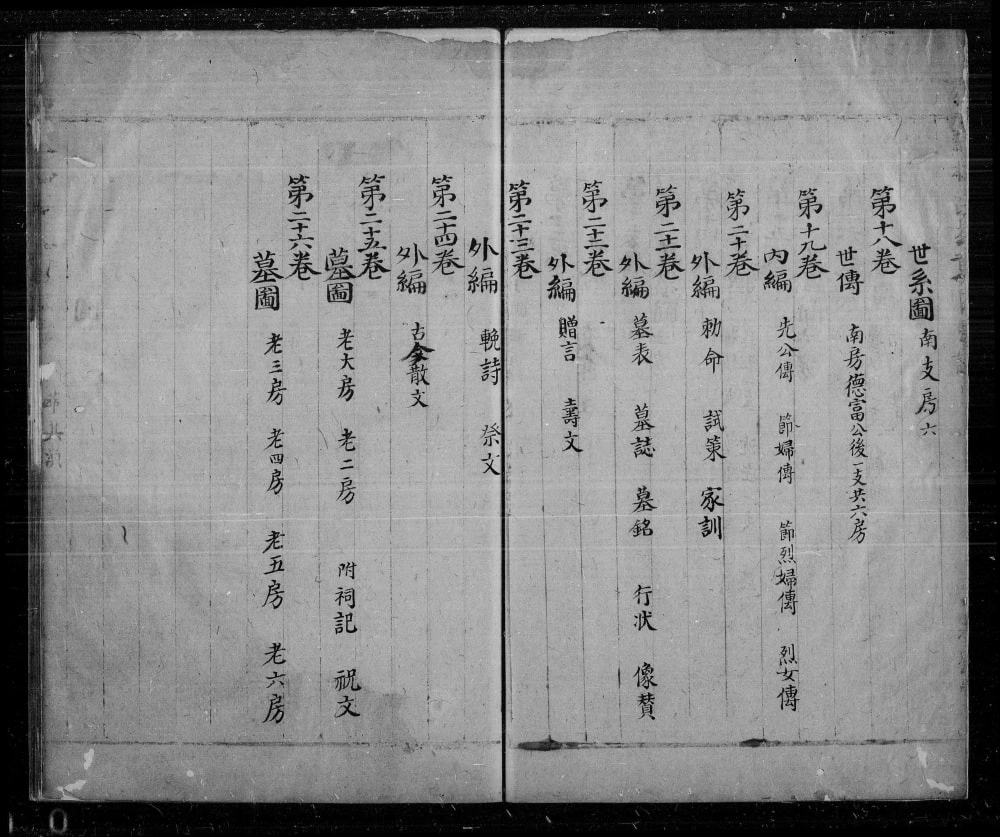 世系圖 南支房六
第十八卷
世傳 南房德富公後一支共六房
第十九卷
內編 先公傳 節婦傳 節烈婦傳 烈女傳
第二十卷
外編 勅命 試策 家訓
第二十一卷
外編 墓表 墓誌 墓銘 行狀 像賛
第二十二卷
外編 贈言 壽文
第二十三卷
外編 輓詩 祭文
第二十四卷
外編 古今散文
第二十五卷
墓圖 老大房 老二房 附祠記 祝文
第二十六卷
墓圖 老三房 老四房 老五房 老六房